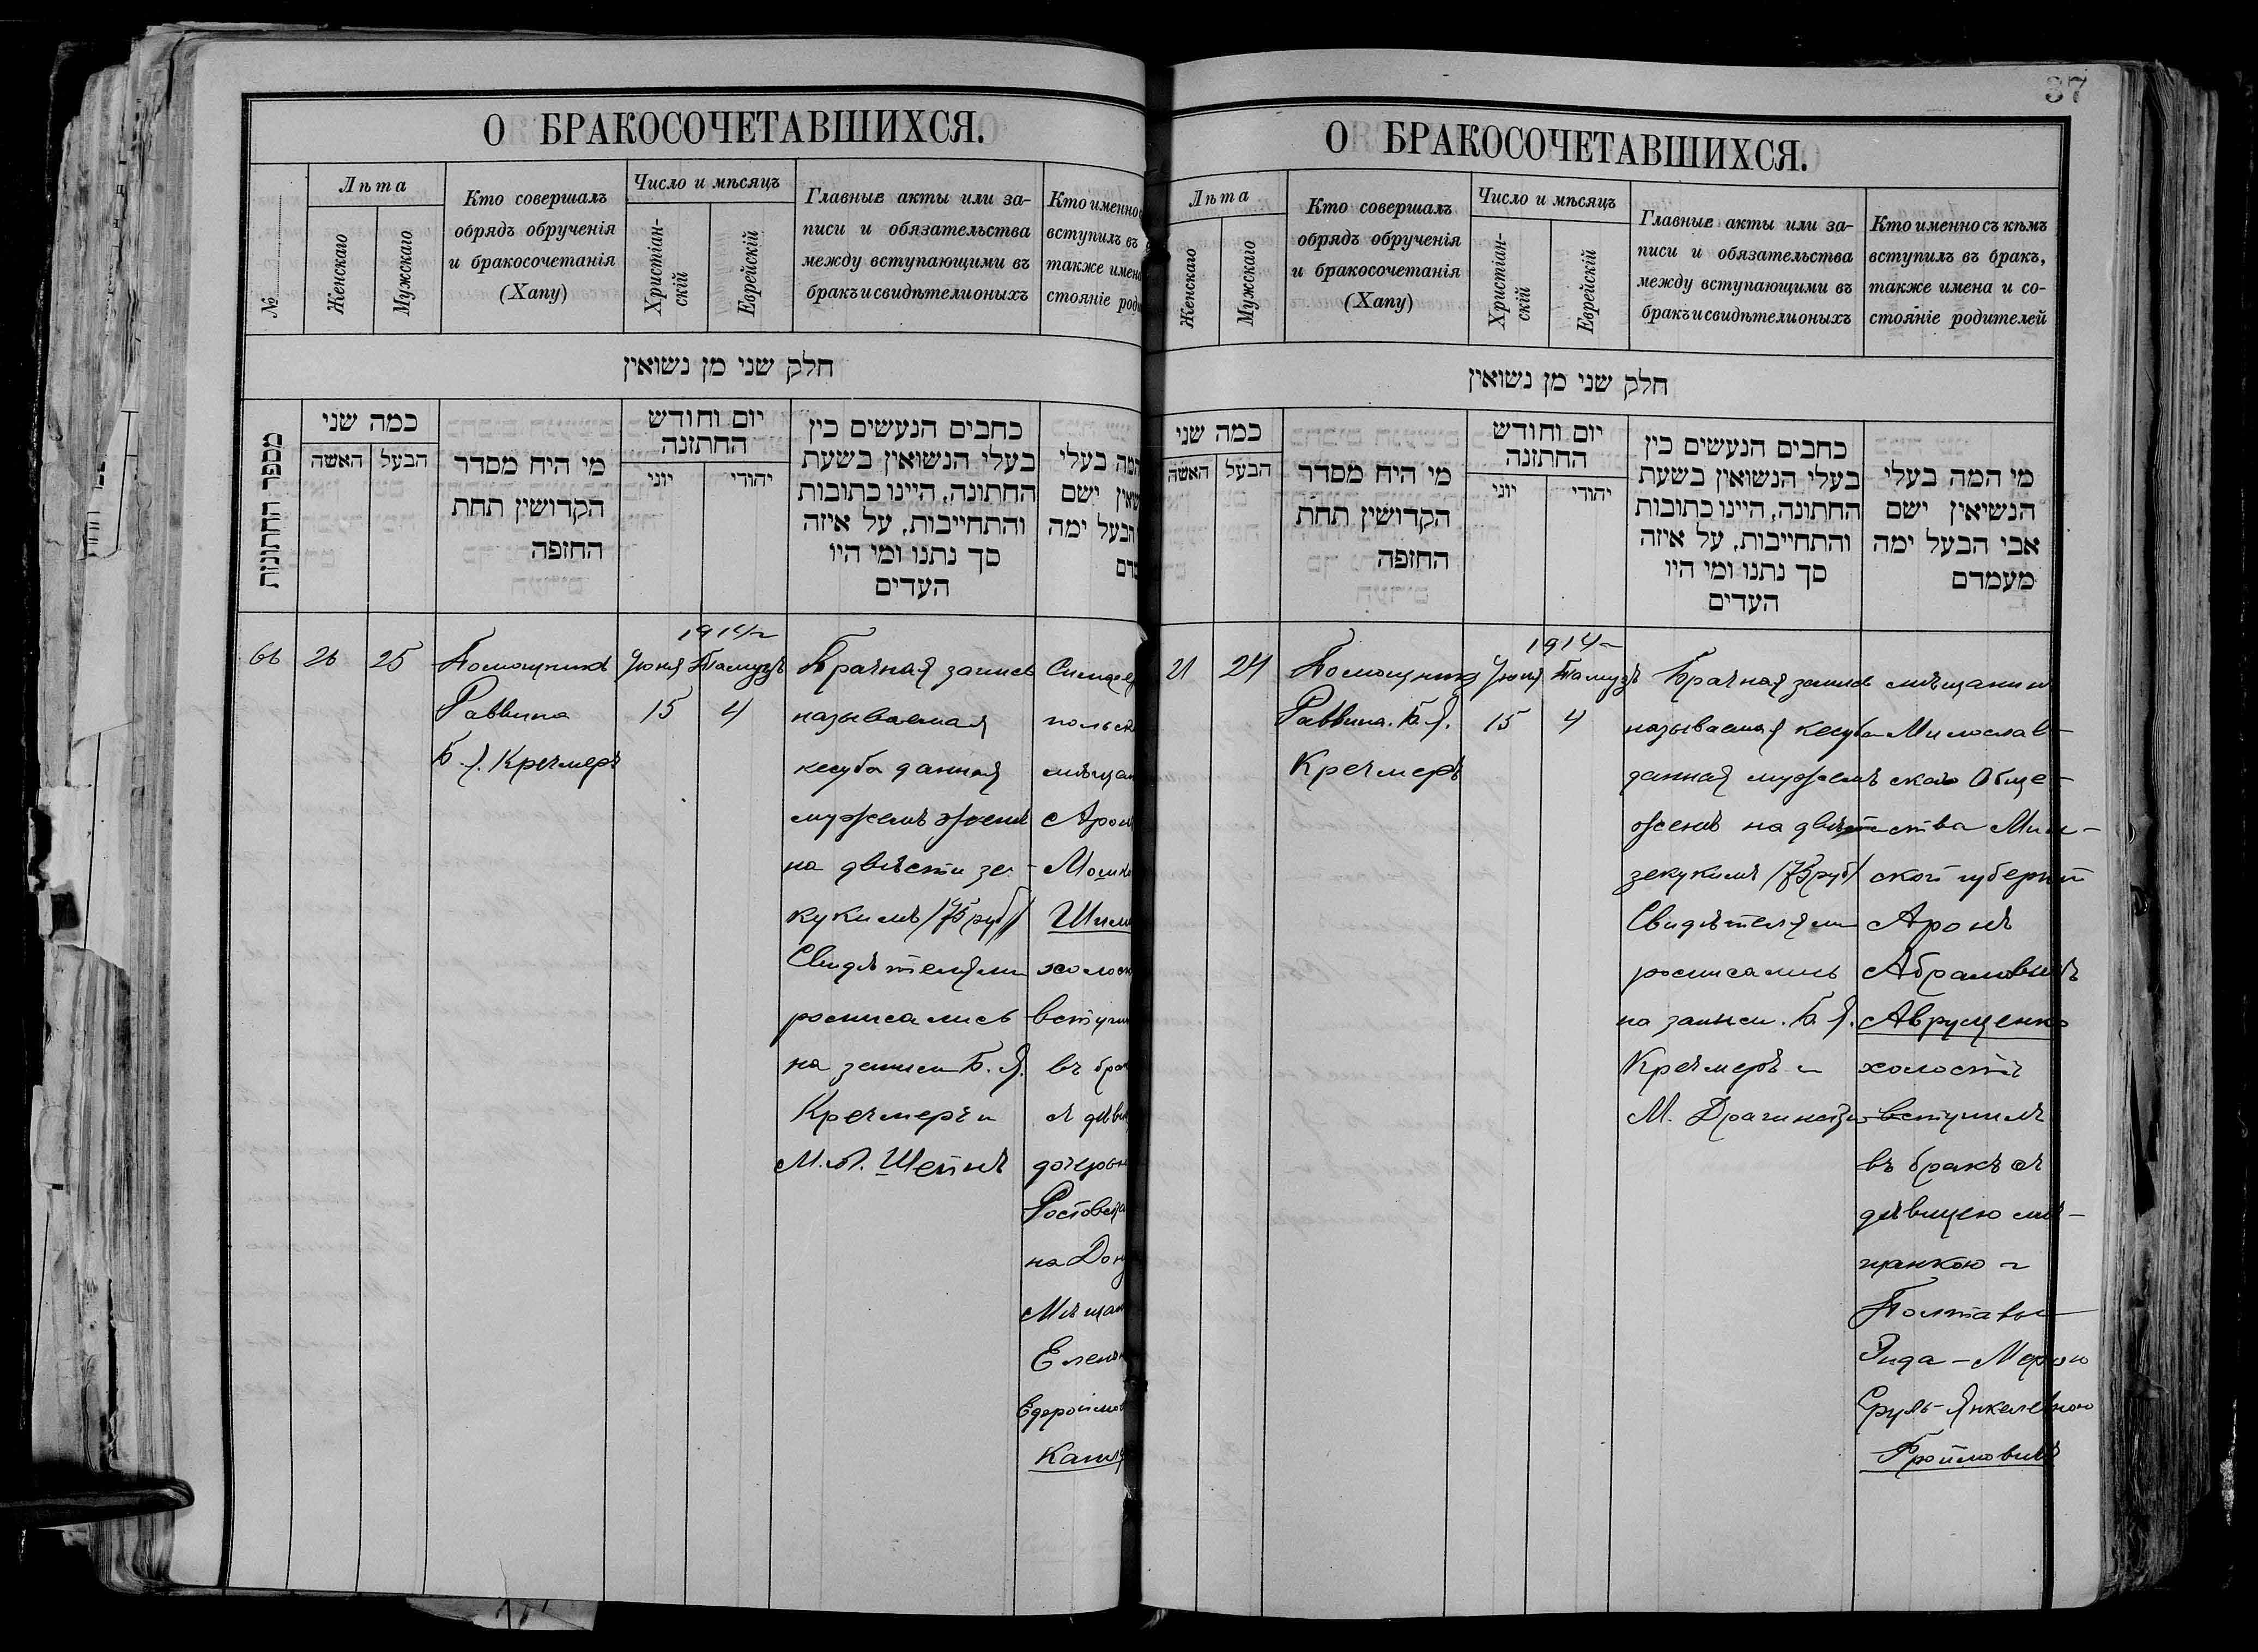 О БРАКОСОЧЕТАВШИХСЯ.
№
Лѣта
Женскаго
Мужскаго
Кто совершалъ
обрядъ обрученія
и бракосочетанія
(Хапу)
Число и мѣсяцъ
Христіан-
скій
Еврейскій
Главные акты или за-
писи и обязательства
между вступающими въ
бракъ и свидѣтели оныхъ
Кто именно
вступилъ въ
также имена
стояніе роди
חלק שני מן נשואין
מספר החתונות
כמה שני
האשה
הבעל
מי היח מסדר
הקדושין תחת
החזפה
יום וחודש
החתזנה
יוני
יהודי
כחבים הנעשים כין
בעלי הנשואין בשעת
החתונה, היינו כתובות
והתחייבות, על איזה
סך נתנו ומי היו
העדים
המה בעלי
שאין ישם
הבעל ימה
66
26
25
Помощникъ
Раввина
Б. Я. Кречмеръ
1914 г
Іюня Тамузъ
15 4
Брачная запись
называемая
кесуба данная
мужемъ женѣ
на двѣсти зе-
кукимъ /75 руб/
Свидѣтелями
росписались
на записи Б. Я.
Кречмеръ и
М. Л. Шейнъ
польск
мѣщан
Арон
Мошк
Шим
холост
вступи
въ бра
съ дѣви
дочерью
Ростовск
на Дону
Мѣщан
Елен
Капл
37
О БРАКОСОЧЕТАВШИХСЯ.
Лѣта
Женскаго
Мужскаго
Кто совершалъ
обрядъ обрученія
и бракосочетанія
(Хапу)
Число и мѣсяцъ
Христіан-
скій
Еврейскій
Главные акты или за-
писи и обязательства
между вступающими въ
бракъ и свидѣтели оныхъ
Кто именно съ кѣмъ
вступилъ въ бракъ,
также имена и со-
стояніе родителей
חלק שני מן נשואין
כמה שני
האשה
הבעל
מי היח מסדר
הקדושין תחת
החזפה
יום וחודש
החתזנה
יוני
יהודי
כחבים הנעשים כין
בעלי הנשואין בשעת
החתונה, היינו כתובות
והתחייבות, על איזה
סך נתנו ומי היו
העדים
מי המה בעלי
הנשיאין ישם
אבי הבעל ימה
מעמדם
21
24
Помощникъ
Раввина. Б. Я.
Кречмеръ
1914 г
Іюня Тамузъ
15 4
Брачная запись
называемая кесуба
данная мужемъ
женѣ на двѣсти
зекукимъ /75 руб/
Свидѣтелями
росписались
на записи. Б. Я.
Кречмеръ и
М. Драчинскій
мѣщанинъ
Милослав-
скаго Обще-
ства Мин-
ской губерніи
Аронъ
Абрамовичъ
Аврущенко
холостъ
вступилъ
въ бракъ съ
дѣвицею мѣ-
щанкою г
Полтавы
Эида-Мерою
Сруль-Янкелевною
Фроймовичъ